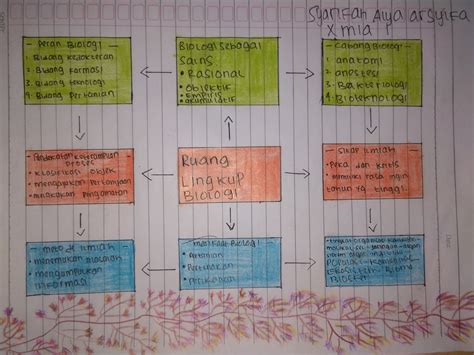 Syarifah Alya arsyifa
X mia
- Peran Biologi
1. Bidang kedokteran
2. Bidang Farmasi
3. Bidang teknologi
4. Bidang Pertanian
Biologi sebagai
Sains
• Rasional
• Objektif
• Empiris
• akumulatif
- Cabang Biologi
1. anatomi
2. anestesi
3. Bakteriologi
4. Bioteknologi
- Pendekatan keterampilan
Proses
• klasifikasi objek
• mengajukan Pertanyaan
• melakukan Pengamatan
Ruang
Lingkup
Biologi
- Sikap ilmiah
• Peka dan kritis
• memiliki rasa ingin
tahu yg tinggi.
- metode ilmiah
• menemukan masalah
• mengumpulkan
informasi
- manfaat Biologi
• Pertanian
• Peternakan
• Perikanan
- tingkat organisasi kehidupan
Populasi - komunitas
ekosistem - Bioma
Biosfer